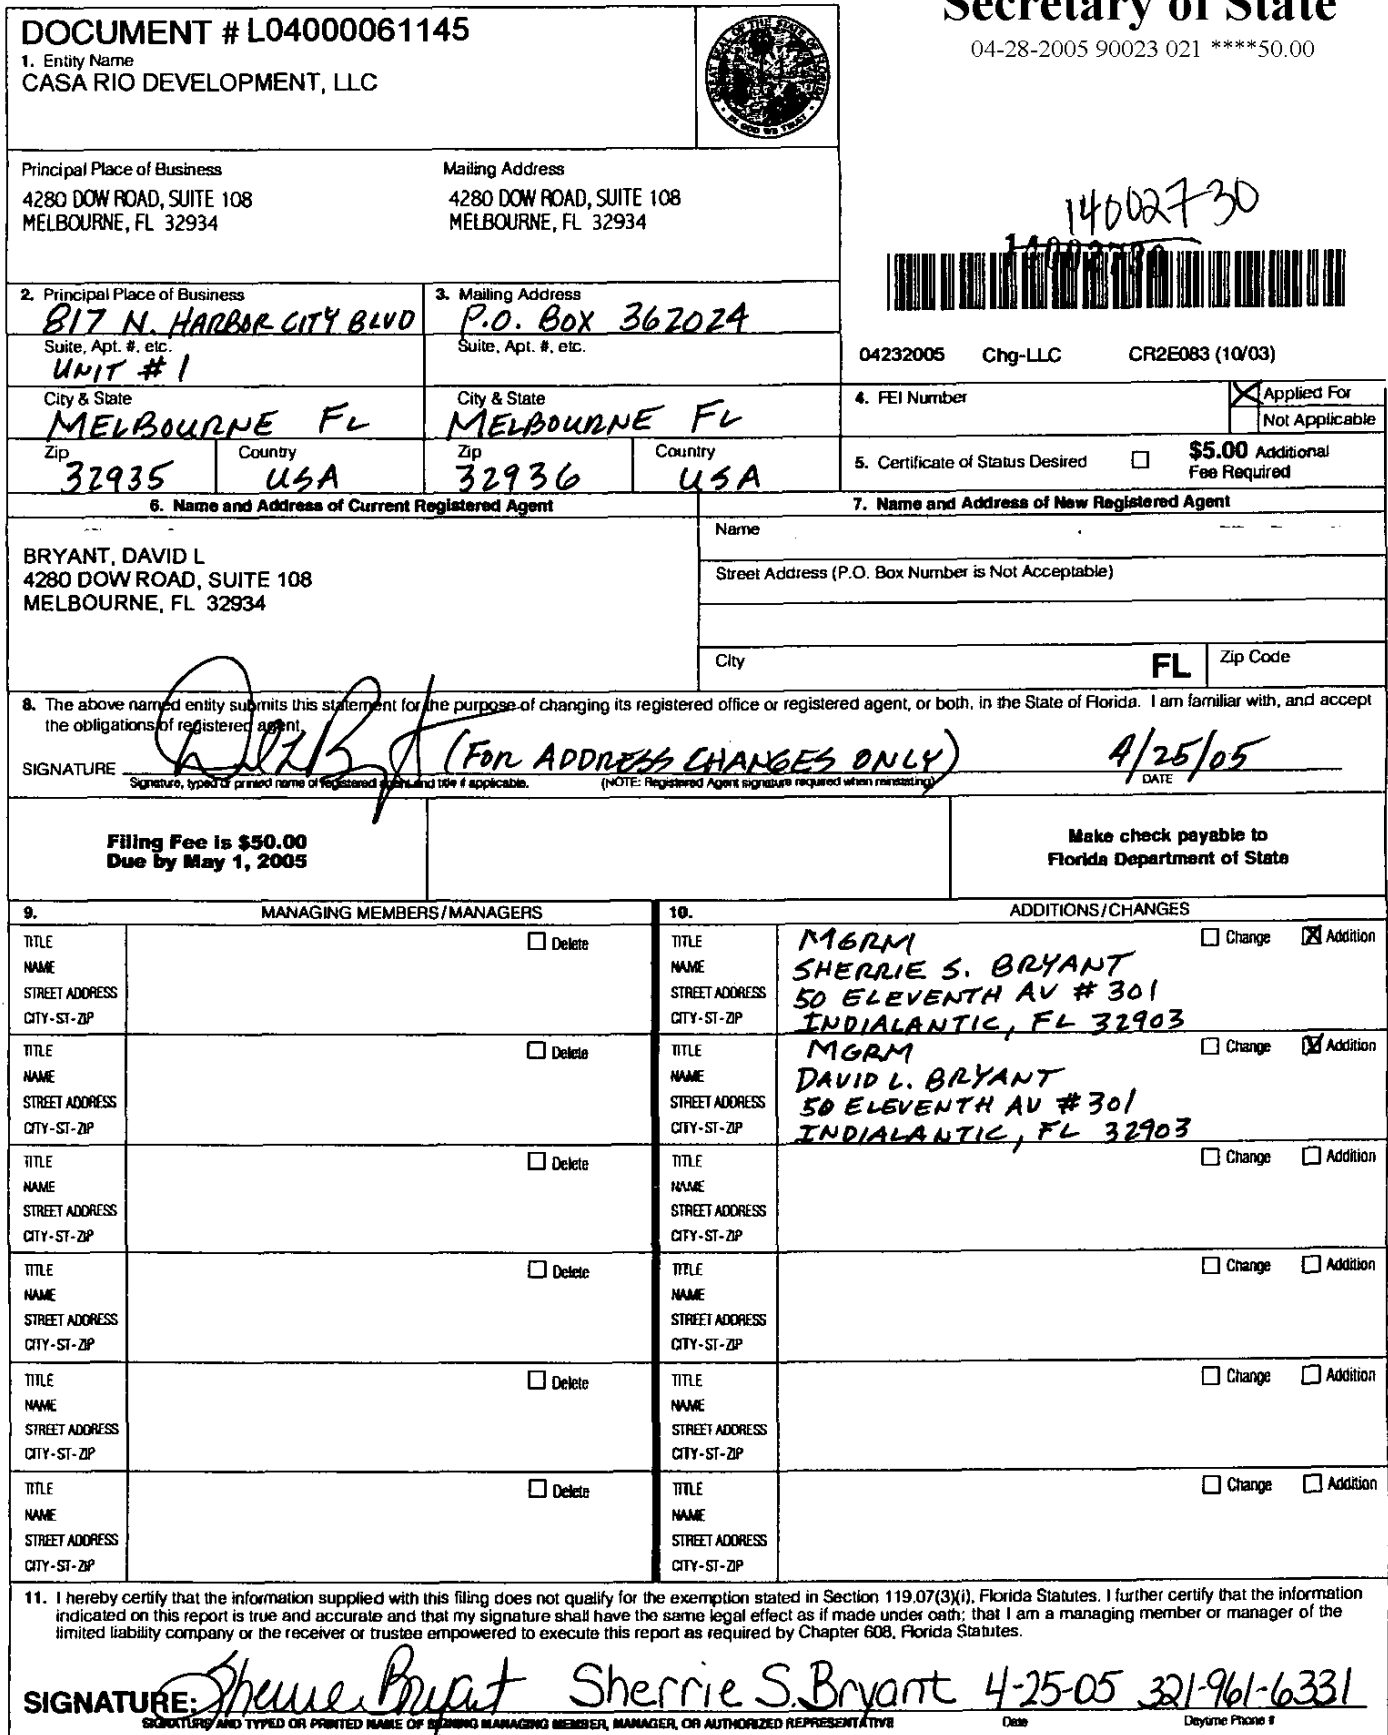 Secretary of State
04-28-2005 90023 021 ****50.00
DOCUMENT # L04000061145
1. Entity Name
CASA RIO DEVELOPMENT, LLC
GREAT SEAL OF THE STATE OF FLORIDA
IN GOD WE TRUST
Principal Place of Business
4280 DOW ROAD, SUITE 108
MELBOURNE, FL 32934
Mailing Address
4280 DOW ROAD, SUITE 108
MELBOURNE, FL 32934
14002730
14002730
2. Principal Place of Business
817 N. HARBOR CITY BLVD
Suite, Apt. #, etc.
UNIT # 1
City & State
MELBOURNE FL
Zip
32935
Country
USA
3. Mailing Address
P.O. BOX 362024
Suite, Apt. #, etc.
City & State
MELBOURNE FL
Zip
32936
Country
USA
04232005 Chg-LLC CR2E083 (10/03)
4. FEI Number
X Applied For
Not Applicable
5. Certificate of Status Desired ☐ $5.00 Additional
Fee Required
6. Name and Address of Current Registered Agent
BRYANT, DAVID L
4280 DOW ROAD, SUITE 108
MELBOURNE, FL 32934
7. Name and Address of New Registered Agent
Name
Street Address (P.O. Box Number is Not Acceptable)
City FL Zip Code
8. The above named entity submits this statement for the purpose of changing its registered office or registered agent, or both, in the State of Florida. I am familiar with, and accept
the obligations of registered agent.
SIGNATURE (FOR ADDRESS CHANGES ONLY) 4/25/05
Signature, typed or printed name of registered agent and title if applicable. (NOTE: Registered Agent signature required when reinstating) DATE
Filing Fee is $50.00
Due by May 1, 2005
Make check payable to
Florida Department of State
9. MANAGING MEMBERS/MANAGERS
10. ADDITIONS/CHANGES
TITLE ☐ Delete
NAME
STREET ADDRESS
CITY-ST-ZIP
TITLE MGRM ☐ Change ☒ Addition
NAME SHERRIE S. BRYANT
STREET ADDRESS 50 ELEVENTH AV # 301
CITY-ST-ZIP INDIALANTIC, FL 32903
TITLE ☐ Delete
NAME
STREET ADDRESS
CITY-ST-ZIP
TITLE MGRM ☐ Change ☒ Addition
NAME DAVID L. BRYANT
STREET ADDRESS 50 ELEVENTH AV # 301
CITY-ST-ZIP INDIALANTIC, FL 32903
TITLE ☐ Delete
NAME
STREET ADDRESS
CITY-ST-ZIP
TITLE ☐ Change ☐ Addition
NAME
STREET ADDRESS
CITY-ST-ZIP
TITLE ☐ Delete
NAME
STREET ADDRESS
CITY-ST-ZIP
TITLE ☐ Change ☐ Addition
NAME
STREET ADDRESS
CITY-ST-ZIP
TITLE ☐ Delete
NAME
STREET ADDRESS
CITY-ST-ZIP
TITLE ☐ Change ☐ Addition
NAME
STREET ADDRESS
CITY-ST-ZIP
TITLE ☐ Delete
NAME
STREET ADDRESS
CITY-ST-ZIP
TITLE ☐ Change ☐ Addition
NAME
STREET ADDRESS
CITY-ST-ZIP
11. I hereby certify that the information supplied with this filing does not qualify for the exemption stated in Section 119.07(3)(i), Florida Statutes. I further certify that the information
indicated on this report is true and accurate and that my signature shall have the same legal effect as if made under oath; that I am a managing member or manager of the
limited liability company or the receiver or trustee empowered to execute this report as required by Chapter 608, Florida Statutes.
SIGNATURE: Sherrie Bryant Sherrie S. Bryant 4-25-05 321-961-6331
SIGNATURE AND TYPED OR PRINTED NAME OF SIGNING MANAGING MEMBER, MANAGER, OR AUTHORIZED REPRESENTATIVE Date Daytime Phone #